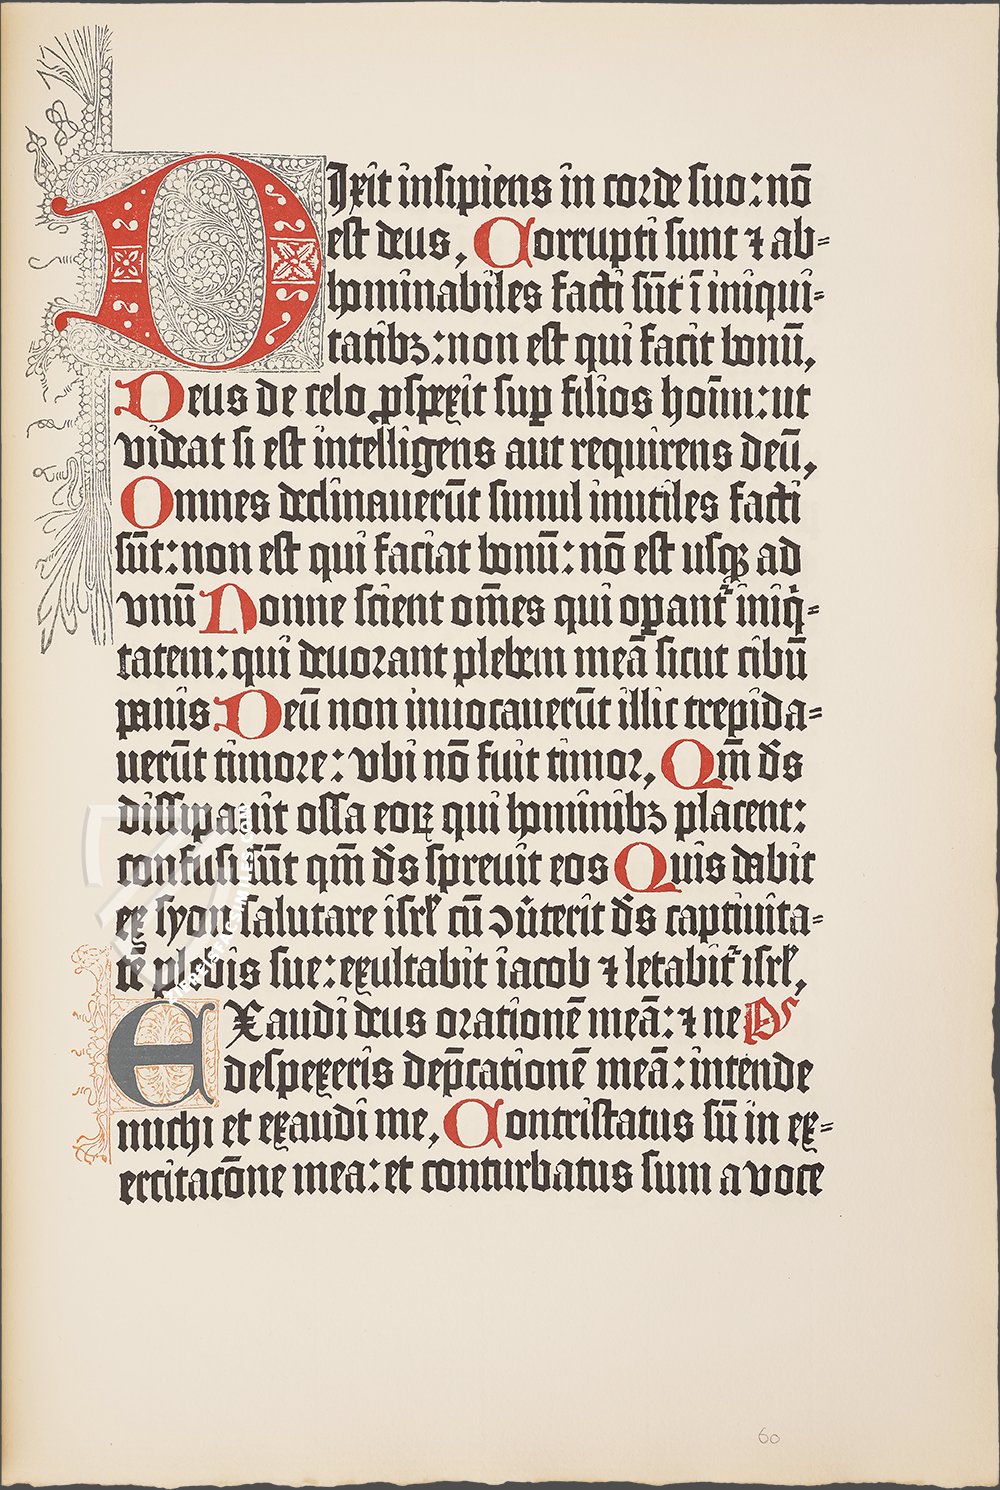 DIxit insipiens in corde suo: nō
est deus, Corrupti sunt ⁊ ab=
hominabiles facti sūt ī iniqui=
tatibꝫ: non est qui facit bonū,
Deus de celo ꝓspexit suꝑ filios hoīm: ut
videat si est intelligens aut requirens deū,
Omnes declinauerūt simul inutiles facti
sūt: non est qui faciat bonū: nō est usqꝫ ad
vnū Nonne scient om̄es qui oꝑant᷑ iniq̇=
tatem: qui deuorant plebem meā sicut cibū
panis Deū non inuocauerūt illic trepida=
uerūt timore: vbi nō fuit timor, Qm̄ ds̄
dissipauit ossa eoꝝ qui hominibꝫ placent:
confusi sūt qm̄ ds̄ spreuit eos Quis dabit
ex syon salutare isrl̄ cū ꝯūterit ds̄ captiuita=
tē plebis sue: exultabit iacob ⁊ letabit᷑ isrl̄,
EXaudi deus orationē meā: ⁊ ne PS
despexeris dep̄cationē meā: intende
michi et exaudi me, Contristatus sū in ex=
ercitacōne mea: et conturbatus sum a voce
60
ZIEREISFACSIMILES.COM